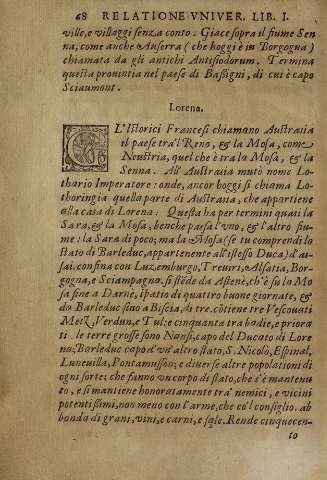 68 RELATIONE VNIVER. LIB. I.
ville, e villaggi senza conto. Giace sopra il fiume Sen
na, come anche Auserra (che hoggi è in Borgogna)
chiamata da gli antichi Antisiodorum. Termina
questa prouintia nel paese di Bassigni, di cui è capo
Sciaumont.
Lorena.
GL'Istorici Francesi chiamano Austrasia
il paese tra'l Reno, & la Mosa, come
Neustria, quel che è tra la Mosa, & la
Senna. All'Austrasia mutò nome Lo-
thario Imperatore: onde, ancor hoggi si chiama Lo
thoringia quella parte di Austrasia, che appartiene
alla casa di Lorena: Questa ha per termini quasi la
Sara, & la Mosa, benche passa l'vno, & l'altro fiu-
me: la Sara di poco; ma la Mosa (se tu comprendi lo
stato di Barleduc, appartenente all'istesso Duca) d'as-
sai. confina con Luzemburgo, Treueri, Alsatia, Bor-
gogna, e Sciampagna. si stēde da Astenè, ch'è su la Mo
sa sine a Darnè, spatio di quattro buone giornate, &
da Barleduc sino a Biscia, di tre. cōtiene tre Vescouati
Metz, Verdun, e Tul; e cinquanta tra badie, e priora
ti. le terre grosse sono Nansì, capo del Ducato di Lore
na; Barleduc capo d'vn'altro stato, S. Nicolò, Espinal,
Luneuilla, Pontamusson; e diuerse altre popolationi di
ogni sorte; che fanno vn corpo di stato, che s'è mantenu
to, e si mantiene honoratamente tra' nemici, e vicini
potentissimi, non meno con l'arme, che co'l consiglio. ab
bonda di grani, vini, e carni, e sale. Rende cinquecen-
to